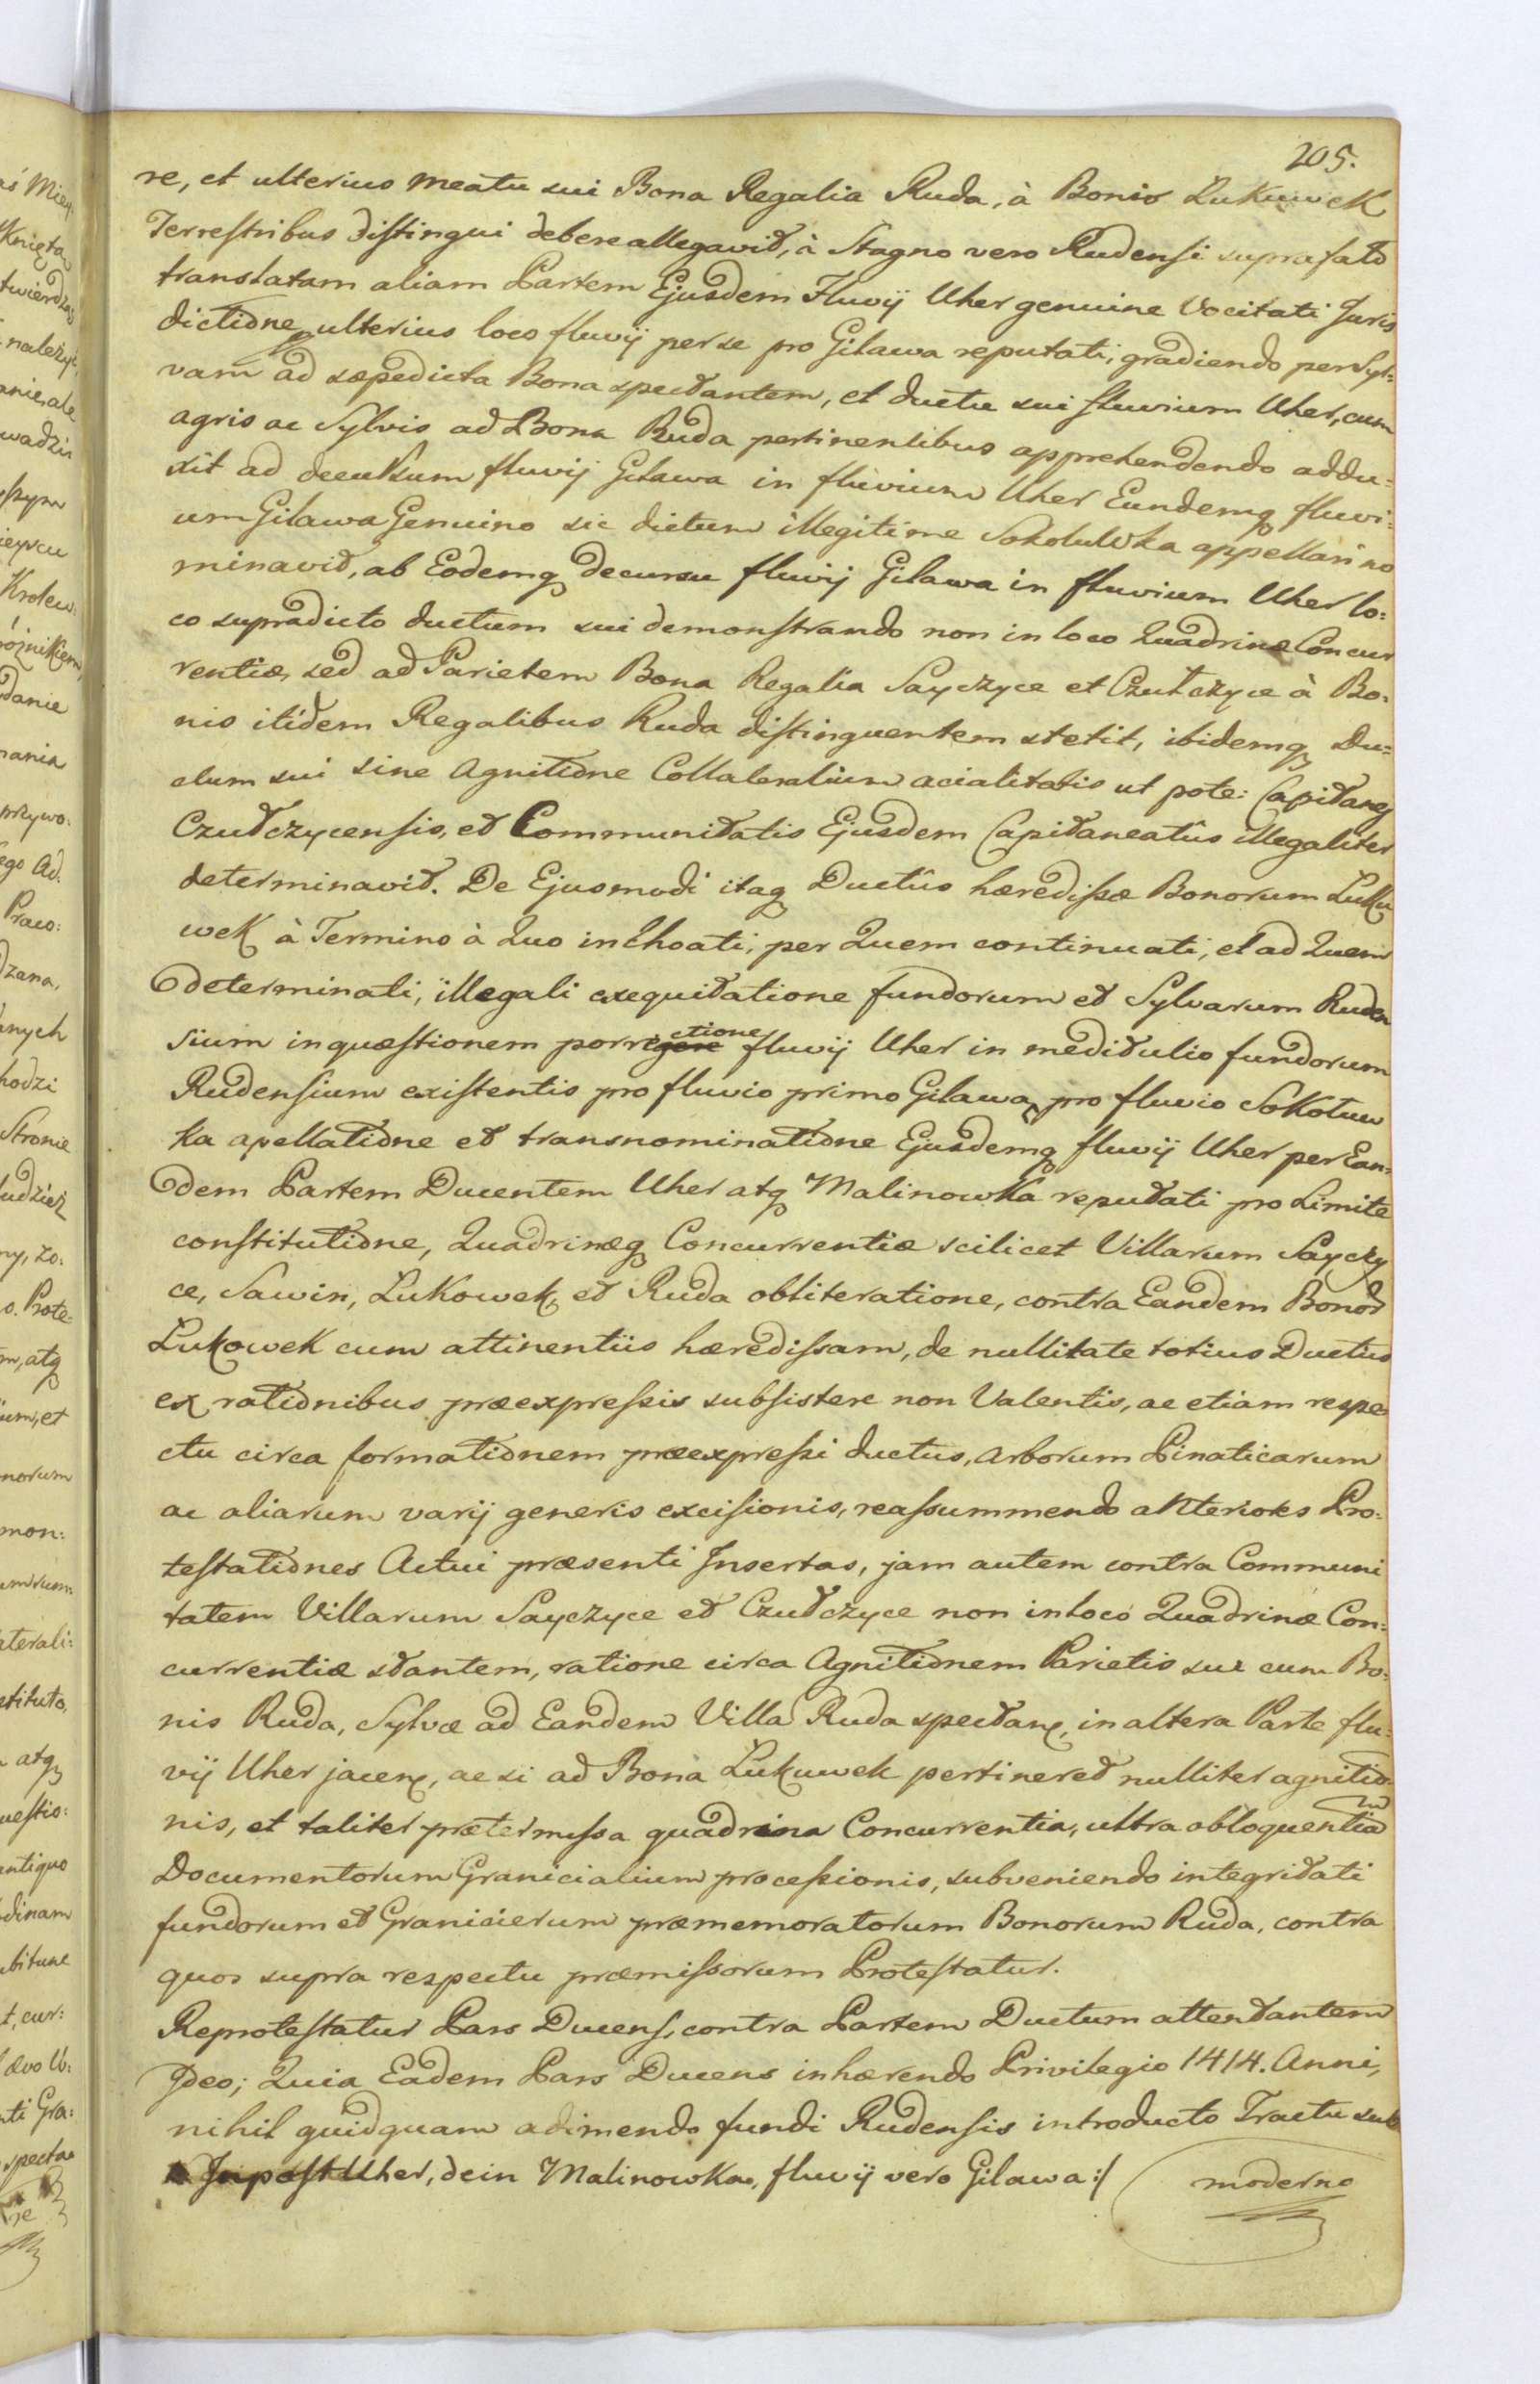 205.
re, et ulterius meatu sui Bona Regalia Ruda, à Bonis Lukuwek
Terrestribus distingui debere allegavit, à Stagno vero Rudensi suprafato
translatam aliam Partem Ejusdem Fluvij Uher genuine Vocitati Juris
dictione ulterius loco fluvij per se pro Gilawa reputati, gradiendo per Syl:
vam ad sæpedicta Bona spectantem, et ductu sui fluvium Uher, cum
agris ac Sylvis ad Bona Ruda pertinentibus apprehendendo addu:
xit ad decursum fluvij Gilawa in fluvium Uher Eundemq fluvi:
um Gilawa Genuino sic dictum illegitime Sokoluwka appellari no
minavit, ab Eodemq decursu fluvij Gilawa in fluvium Uher lo:
co supradicto ductum sui demonstrando non in loco Quadrinæ Concur
rentiæ, sed ad Parietem Bona Regalia Sayczyce et Czutczyce à Bo:
nis itidem Regalibus Ruda distinguentem stetit, ibidemq Du=
ctum sui sine Agnitione Collateralium acialitatis ut pote: Capitanej
Czutczycensis, et Communitatis Ejusdem Capitaneatûs illegaliter
determinavit. De Ejusmodi itaq Ductûs hæredissæ Bonorum Luku
wek à Termino à Quo inchoati, per Quem continuati, et ad Quem
determinati, illegali exequitatione fundorum et Sylvarum Ruden
sium in quæstionem porrigere ctione fluvij Uher in meditulio fundorum
Rudensium existentis pro fluvio primo Gilawa, pro fluvio Sokołuw
ka apellatione et transnominatione Ejusdemq fluvij Uher per Ean:
dem Partem Ducentem Uher atq Malinowka reputati pro Limite
constitutione, Quadrinæq Concurrentiæ scilicet Villarum Sayczy
ce, Sawin, Lukowek, et Ruda obliteratione, contra Eandem Bonor
Lukowek cum attinentiis hæredissam, de nullitate totius Ductus
ex rationibus præexpressis subsistere non Valentis, ac etiam respe
ctu circa formationem præexpressi ductus, Arborum Pinaticarum
ac aliarum varij generis excisionis, reassummendo anteriores Pro:
testationes Actui præsenti Insertas, jam autem contra Communi
tatem Villarum Sayczyce et Czutczyce non in loco Quadrinæ Con:
currentiæ stantem, ratione circa Agnitionem Parietis sui cum Bo:
nis Ruda, Sylvæ ad Eandem Villa Ruda spectan, in altera Parte flu:
vij Uher jacen, ac si ad Bona Lukuwek pertineret nulliter agnitio:
nis, et taliter prætermissa quadrina Concurrentia, ultra obloquentiam
Documentorum Granicialium processionis, subveniendo integritati
fundorum et Granicierum præmemoratorum Bonorum Ruda, contra
quos supra respectu præmissorum Protestatur.
Reprotestatur Pars Ducens, contra Partem Ductum attentantem
Ideo; Quia Eadem Pars Ducens inhærendo Privilegio 1414. Anni,
nihil quidquam adimendo fundi Rudensis introducto Tractu sub
Inpost Uher, dein Malinowka, fluvij vero Gilawa :/ moderno